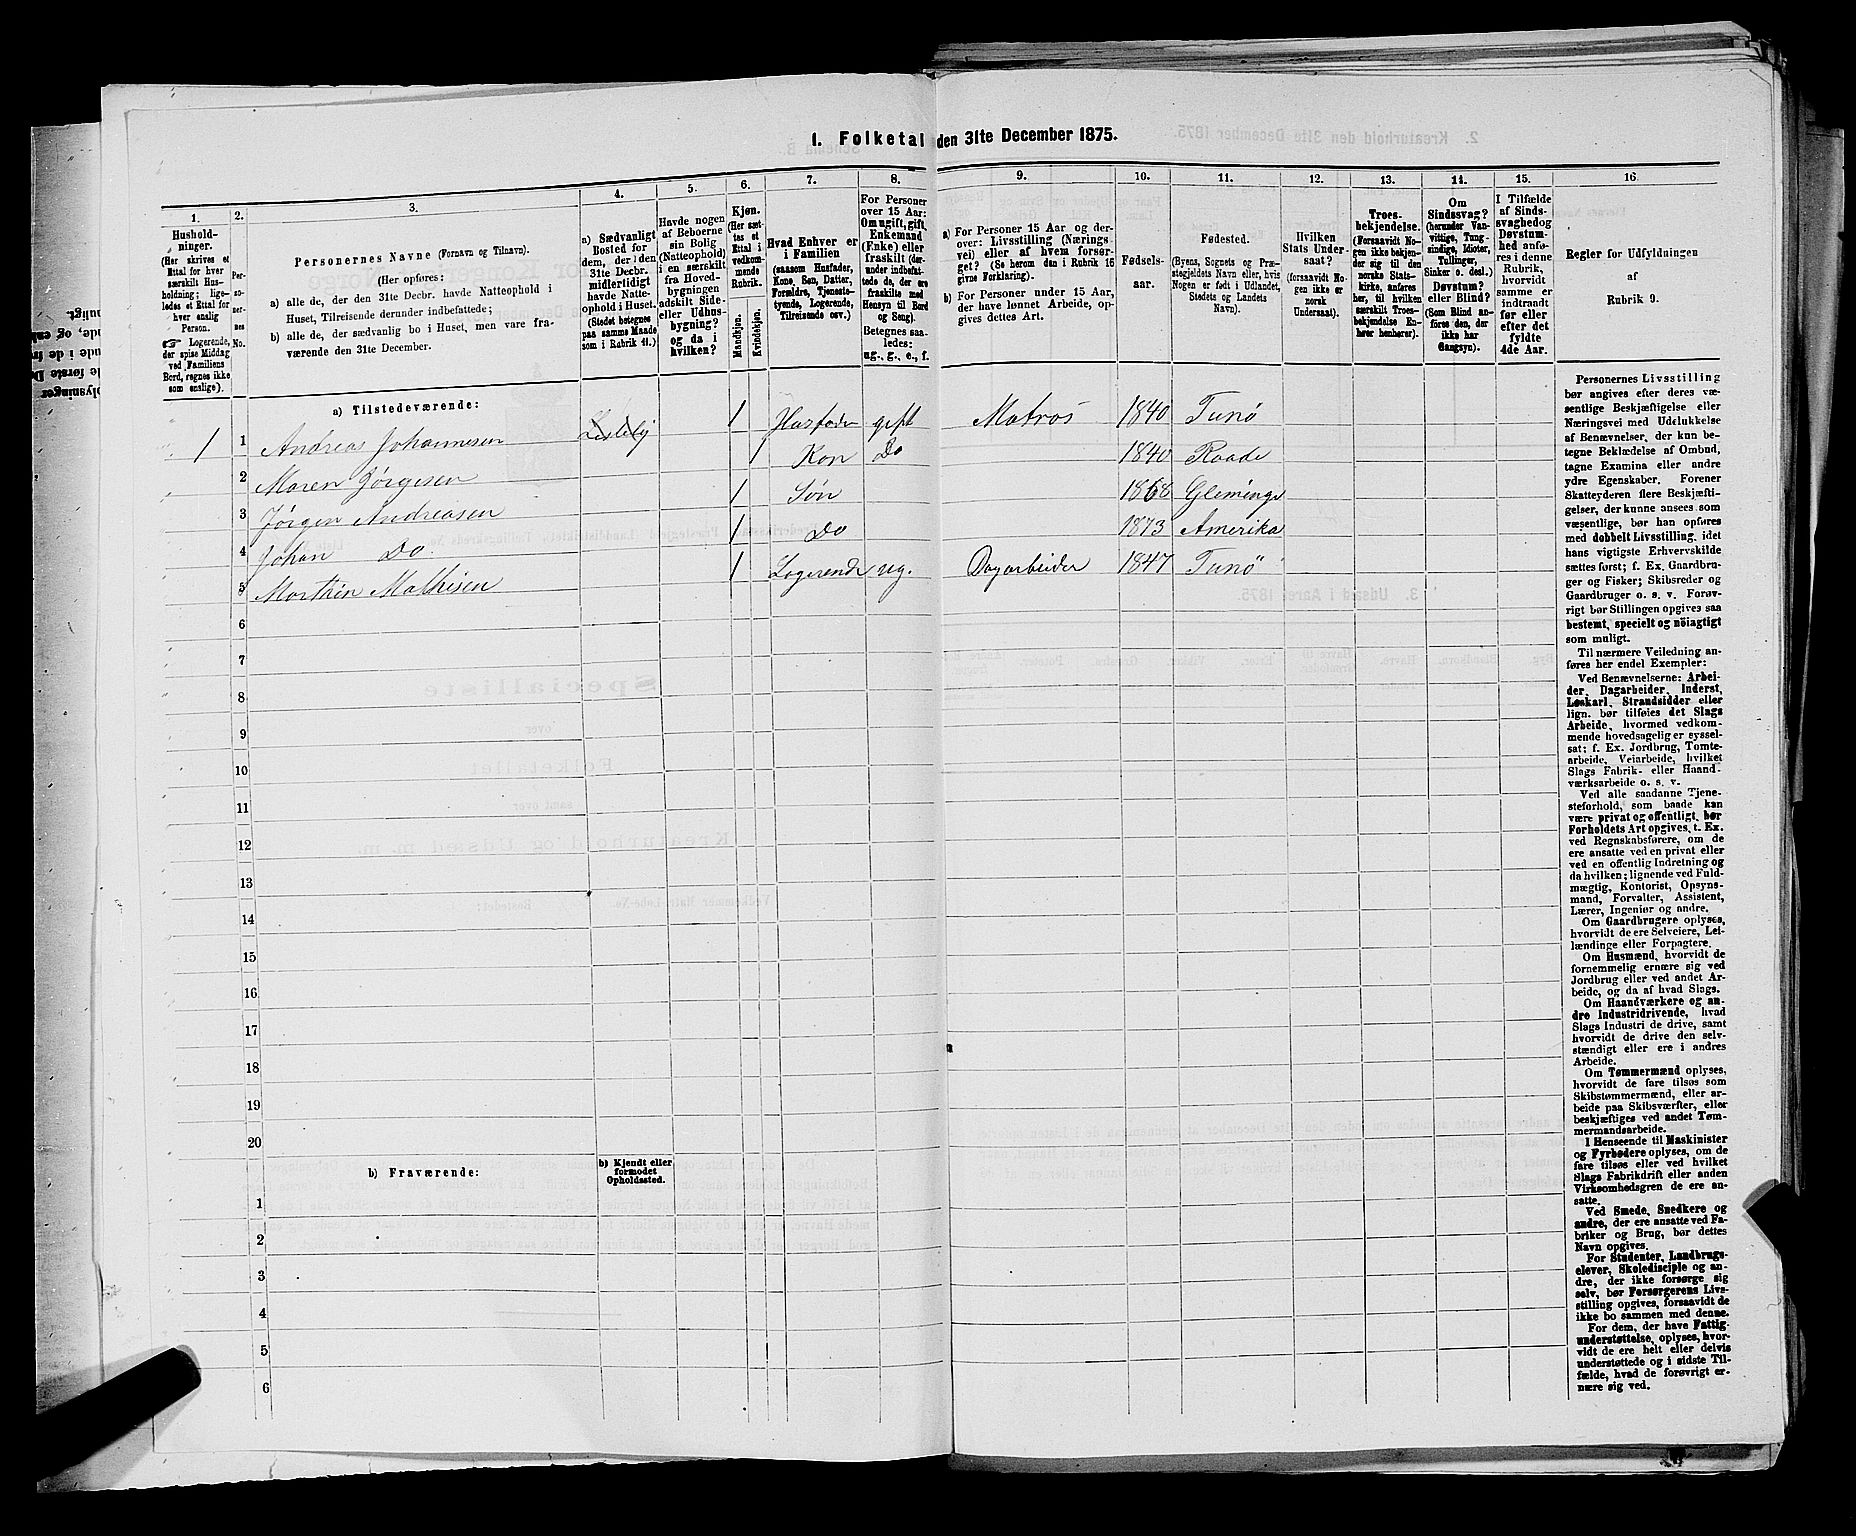 1. Folketal den 31te December 1875.
1. 2. 3. 4. 5. 6. 7. 8. 9. 10. 11. 12. 13. 14. 15. 16.
Hushold-
ninger.
(Her skrives et
Ettal for hver
særskilt Hus-
holdning; lige-
ledes et Ettal for
hver enslig
Person.
☞ Logerende,
der spise Middag
ved Familiens
Bord, regnes ikke
som enslige).
Per-
so-
ner-
nes
No.
Personernes Navne (Fornavn og Tilnavn).
(Her opføres:
a) alle de, der den 31te Decbr. havde Natteophold i
Huset, Tilreisende derunder indbefattede;
b) alle de, der sædvanlig bo i Huset, men vare fra-
værende den 31te December.
a) Sædvanligt
Bosted for
dem, der den
31te Decbr.
midlertidigt
havde Natte-
ophold i Huset.
(Stedet betegnes
paa samme Maade
som i Rubrik 11.)
Havde nogen
af Beboerne
sin Bolig
(Natteophold)
i en særskilt
fra Hoved-
bygningen
adskilt Side-
eller Udhus-
bygning?
og da i
hvilken?
Kjøn.
(Her sæt-
tes et
Ettal i
vedkom-
mende
Rubrik.
Mandkjøn.
Kvindekjøn.
Hvad Enhver er
i Familien
(saasom Husfader,
Kone, Søn, Datter,
Forældre, Tjeneste-
tyende, Logerende,
Tilreisende osv.)
For Personer
over 15 Aar:
Om ugift, gift,
Enkemand
(Enke) eller
fraskilt (der-
under indbefat-
tede de, der ere
fraskilte med
Hensyn til Bord
og Seng).
Betegnes saa-
ledes:
ug., g., e., f.
a) For Personer 15 Aar og der-
over: Livsstilling (Nærings-
vei) eller af hvem forsør-
get? (Se herom den i Rubrik 16
givne Forklaring).
b) For Personer under 15 Aar,
der have lønnet Arbeide, op-
gives dettes Art.
Fødsels-
aar.
Fødested.
(Byens, Sognets og Præ-
stegjeldets Navn eller, hvis
Nogen er født i Udlandet,
Stedets og Landets
Navn).
Hvilken
Stats Under-
saat?
(forsaavidt No-
gen ikke er
norsk
Undersaat).
Troes-
bekjendelse.
(Forsaavidt No-
gen ikke bekjen-
der sig til den
norske Stats-
kirke, anføres
her, til hvilken
særskilt Troes-
bekjendelse En-
hver henhører).
Om
Sindssvag?
(herunder Van-
vittige, Tung-
sindige, Idioter,
Tullinger,
Sinker o. desl.)
Døvstum?
eller Blind?
(Som Blind an-
føres den, der
ikke har
Gangsyn).
I Tilfælde
af Sinds-
svaghed og
Døvstum-
hed anfø-
res i denne
Rubrik,
hvorvidt
samme er
indtraadt
før eller
efter det
fyldte
4de Aar.
Regler for Udfyldningen
af
Rubrik 9.
a) Tilstedeværende:
1 1 Andreas Johannesen 1 Husfader gift Matros 1840 Tunø
2 Maren Jörgesen 1 Kon Do 1840 Raade
3 Jörgen Andreasen 1 Søn 1868 Gleminge
4 Johan Do 1 Do 1873 Amerika
5 Marthin Mathisen 1 Logerende ug. Dagarbeider 1847 Tunö
6
7
8
9
10
11
12
13
14
15
16
17
18
19
20
b) Fraværende:
b) Kjendt eller
formodet
Opholdssted.
1
2
3
4
5
6
Personernes Livsstilling
bør angives efter deres væ-
sentlige Beskjæftigelse eller
Næringsvei med Udelukkelse
af Benævnelser, der kun be-
tegne Beklædelse af Ombud,
tagne Examina eller andre
ydre Egenskaber. Forener
Skatteyderen flere Beskjæfti-
gelser, der kunne ansees som
væsentlige, bør han opføres
med dobbelt Livsstilling, idet
hans vigtigste Erhvervskilde
sættes først; f. Ex. Gaardbru-
ger og Fisker; Skibsreder og
Gaardbruger o. s. v. Forøv-
rigt bør Stillingen opgives saa
bestemt, specielt og nöiagtigt
som muligt.
Til nærmere Veiledning an-
føres her endel Exempler:
Ved Benævnelserne: Arbei-
der, Dagarbeider, Inderst,
Løskarl, Strandsidder eller
lign. bør tilføies det Slags
Arbeide, hvormed vedkom-
mende hovedsagelig er syssel-
sat; f. Ex. Jordbrug, Tomte-
arbeide, Veiarbeide, hvilket
Slags Fabrik- eller Haand-
værksarbeide o. s. v.
Ved alle saadanne Tjene-
steforhold, som baade kan
være privat og offentligt, bør
Forholdets Art opgives, t. Ex.
ved Regnskabsførere, om de
ere ansatte ved en privat eller
ved en offentlig Indretning og
da hvilken; lignende ved Fuld-
mægtig, Kontorist, Opsyns-
mand, Forvalter, Assistent,
Lærer, Ingeniør og andre.
Om Gaardbrugere oplyses,
hvorvidt de ere Selveiere, Lei-
lændinge eller Forpagtere.
Om Husmænd, hvorvidt de
fornemmelig ernære sig ved
Jordbrug eller ved andet Ar-
beide, og da af hvad Slags.
Om Haandværkere og an-
dre Industridrivende, hvad
Slags Industri de drive, samt
hvorvidt de drive den selv-
stændigt eller ere i andres
Arbeide.
Om Tømmermænd oplyses,
hvorvidt de fare tilsøs som
Skibstømmermænd, eller ar-
beide paa Skibsværfter, eller
beskjæftiges ved andet Tøm-
mermandsarbeide.
I Henseende til Maskinister
og Fyrbødere oplyses, om de
fare tilsøs eller ved hvilket
Slags Fabrikdrift eller anden
Virksomhedsgren de ere an-
satte.
Ved Smede, Snedkere og
andre, der ere ansatte ved Fa-
briker og Brug, bør dettes
Navn opgives.
For Studenter, Landbrugs-
elever, Skoledisciple og an-
dre, der ikke forsørge sig
selv, bør Forsørgerens Livs-
stilling opgives, forsaavidt de
ikke bo sammen med denne.
For dem, der have Fattig-
understøttelse, oplyses, hvor-
vidt de ere helt eller delvis
understøttede og i sidste Til-
fælde, hvad de forøvrigt er-
nære sig ved.